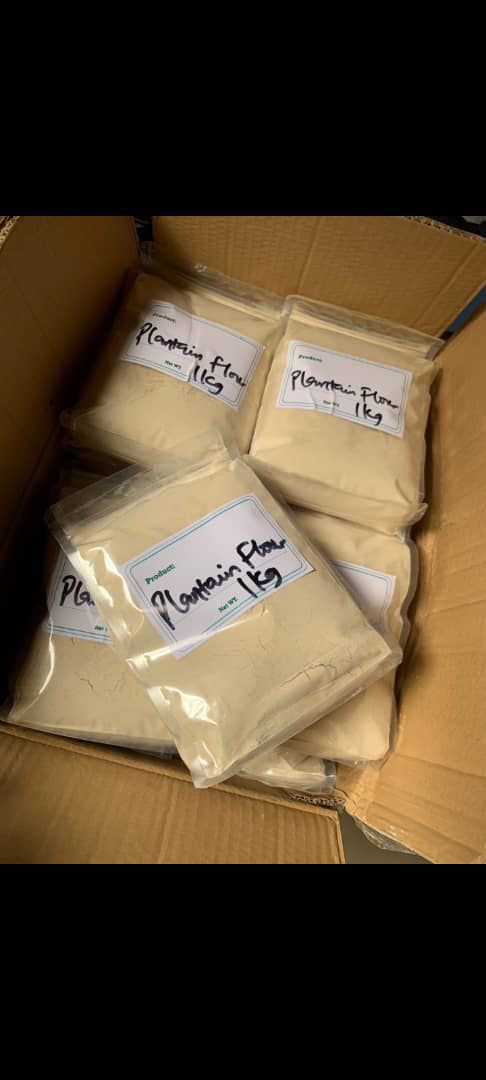 Product:
Plantain Flour
Net WT. 1kg
Product:
Plantain Flour
1kg
Net WT.
Product:
Plantain Flour
1kg
Net WT.
Pla
Net